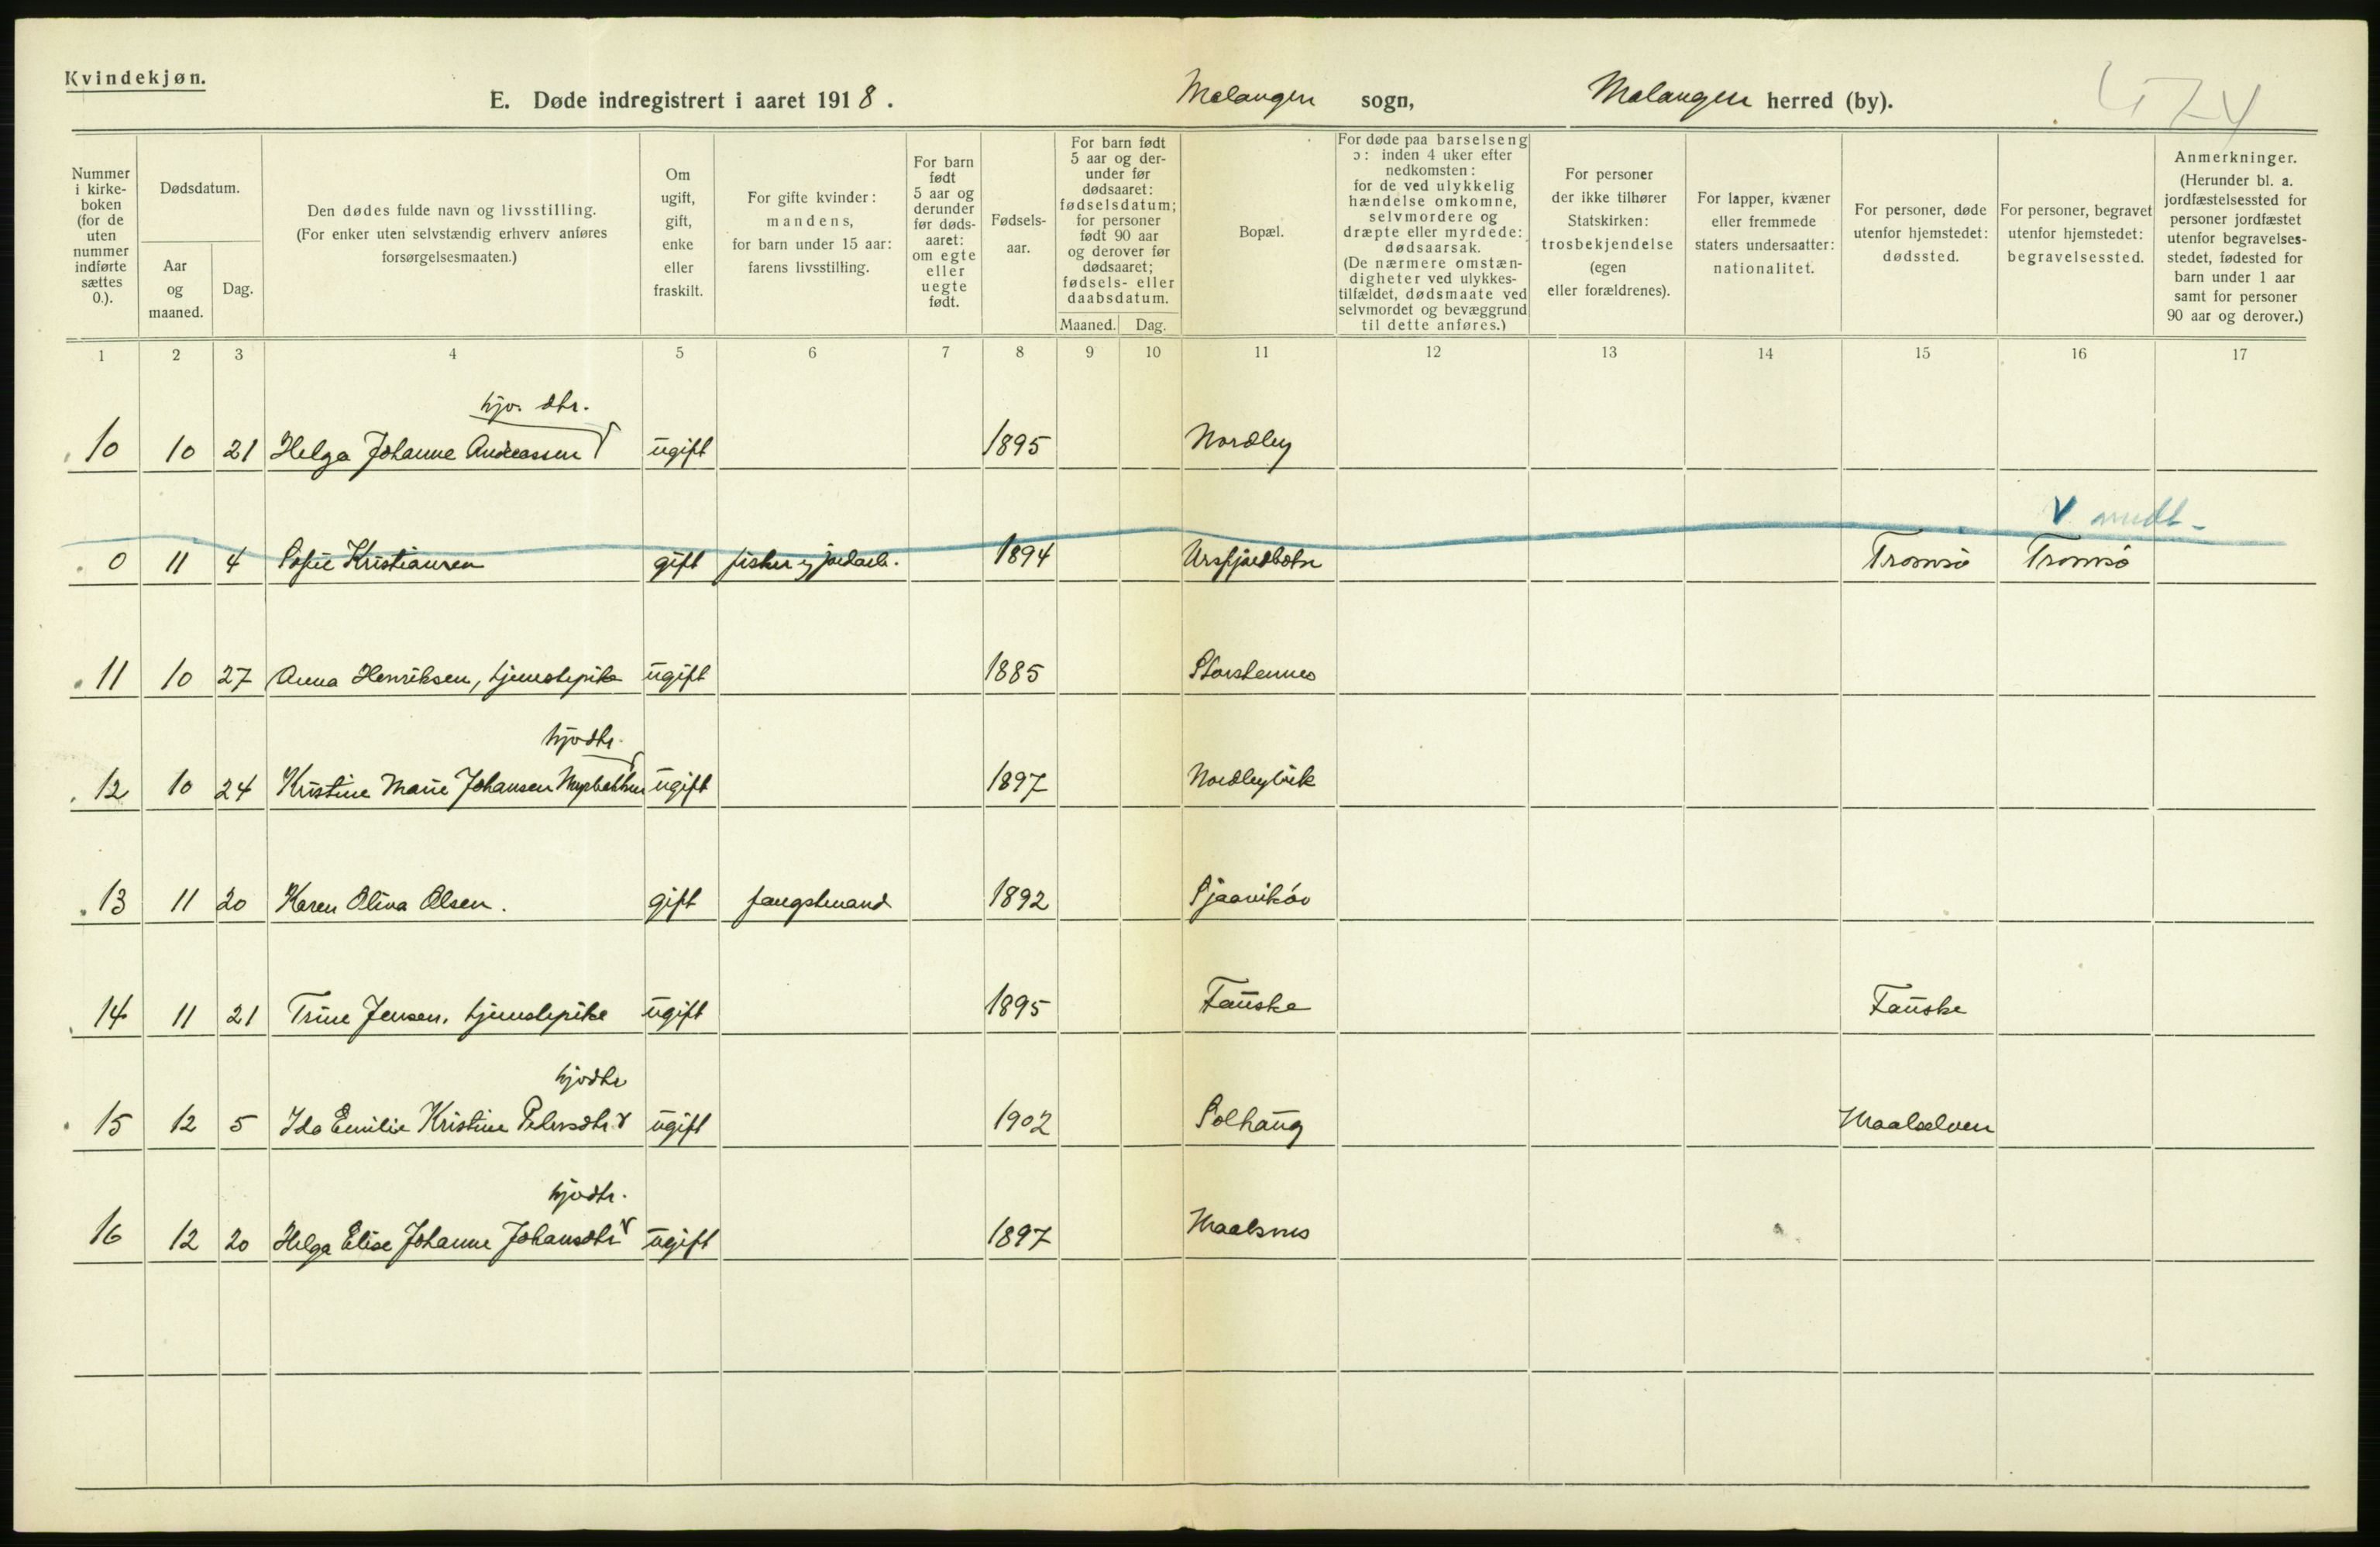 Kvindekjøn.
E. Døde indregistrert i aaret 1918. Malangen sogn, Malangen herred (by).
Nummer i kirkeboken (for de uten nummer indførte sættes 0.).
Dødsdatum.
Aar og maaned.
Dag.
Den dødes fulde navn og livsstilling.
(For enker uten selvstændig erhverv anføres forsørgelsesmaaten.)
Om ugift, gift, enke eller fraskilt.
For gifte kvinder: mandens, for barn under 15 aar: farens livsstilling.
For barn født 5 aar og derunder før dødsaaret: om egte eller uegte født.
Fødselsaar.
For barn født 5 aar og derunder før dødsaaret: fødselsdatum; for personer født 90 aar og derover før dødsaaret; fødsels- eller daabsdatum.
Maaned. Dag.
Bopæl.
For døde paa barselseng ɔ: inden 4 uker efter nedkomsten: for de ved ulykkelig hændelse omkomne, selvmordere og dræpte eller myrdede: dødsaarsak.
(De nærmere omstændigheter ved ulykkestilfældet, dødsmaate ved selvmordet og bevæggrund til dette anføres.)
For personer der ikke tilhører Statskirken: trosbekjendelse (egen eller forældrenes).
For lapper, kvæner eller fremmede staters undersaatter: nationalitet.
For personer, døde utenfor hjemstedet: dødssted.
For personer, begravet utenfor hjemstedet: begravelsessted.
Anmerkninger.
(Herunder bl. a. jordfæstelsessted for personer jordfæstet utenfor begravelsesstedet, fødested for barn under 1 aar samt for personer 90 aar og derover.)
1 2 3 4 5 6 7 8 9 10 11 12 13 14 15 16 17
hjv. dtr.
10 10 21 Helga Johanne Andreassen ugift 1895 Nordby
0 11 4 Sofie Kristiansen gift fisker og jordarb. 1894 Ursfjordbotn Tromsø Tromsø
11 10 27 Anna Henriksen, tjenestepike ugift 1885 Storstennes
hjvdtr.
12 10 24 Kristine Marie Johansen ugift 1897 Nordbyvik
13 11 20 Karen Oliva Olsen. gift fangstmand 1892
14 11 21 Trine Jensen, tjenestepike ugift 1895 Fauske Fauske
hjvdtr
15 12 5 Ida Emilie Kristine Pedersdtr. ugift 1902 Solhaug Maalselven
hjvdtr.
16 12 20 Helga Elise Johanne Johansdtr ugift 1897 Maalsnes